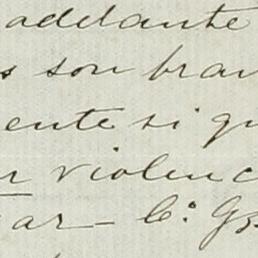 adelante
s son bra
ente si qu
r violenc
ar — C.